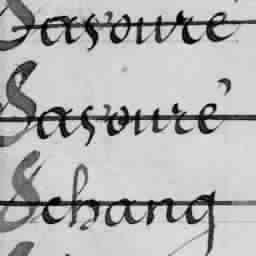 Savouré
Savouré
Schang